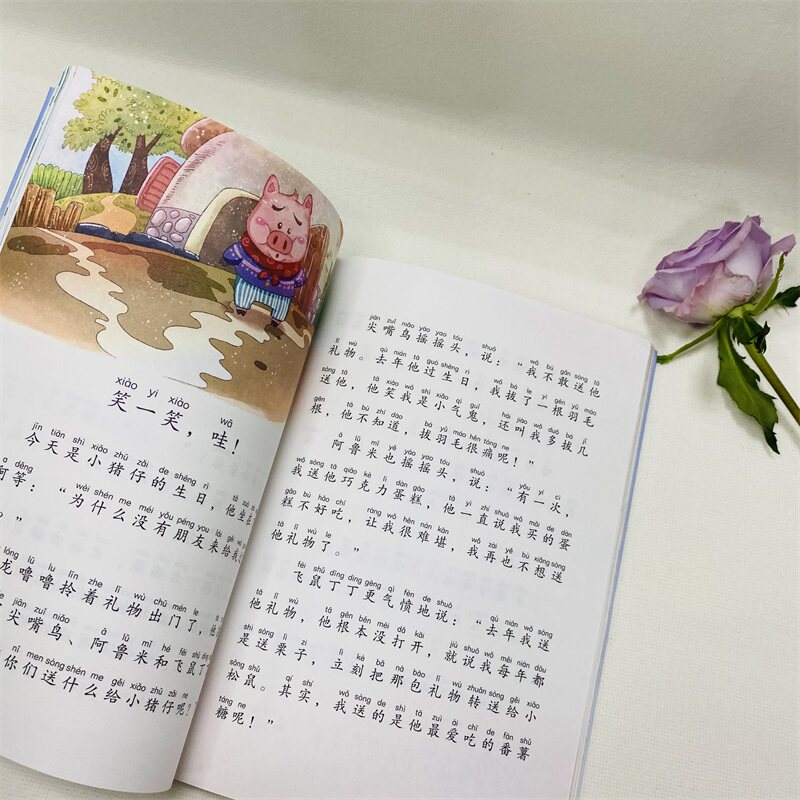 xiào yi xiào wā
笑一笑，哇！
jīn tiān shì xiǎo zhū zǎi de shēng rì tā
今天是小猪仔的生日，他坐
děng wèi shén me méi yǒu péng you lái gěi
等：“为什么没有朋友来给我
。”
lóng lū lu līn zhe lǐ wù chū mén le
龙噜噜拎着礼物出门了，
jiān zuǐ niǎo ā lǔ mǐ hé fēi shǔ dīng
尖嘴鸟、阿鲁米和飞鼠丁
nǐ men sòng shén me gěi xiǎo zhū zǎi ne
你们送什么给小猪仔呢？
jiān zuǐ niǎo yáo yao tóu shuō wǒ bù gǎn sòng tā
尖嘴鸟摇摇头，说：“我不敢送他
lǐ wù qù nián tā guò shēng rì wǒ bá le yì gēn yǔ máo
礼物。去年他过生日，我拔了一根羽毛
sòng tā tā xiào wǒ shì xiǎo qì guǐ hái jiào wǒ duō bá jǐ
送他，他笑我是小气鬼，还叫我多拔几
gēn tā bù zhī dào bá yǔ máo hěn tòng ne
根，他不知道，拔羽毛很痛呢！”
ā lǔ mǐ yě yáo yao tóu shuō yǒu yí cì
阿鲁米也摇摇头，说：“有一次，
wǒ sòng tā qiǎo kè lì dàn gāo tā yì zhí shuō wǒ mǎi de dàn
我送他巧克力蛋糕，他一直说我买的蛋
gāo bù hǎo chī ràng wǒ hěn nán kān wǒ zài yě bù xiǎng sòng
糕不好吃，让我很难堪，我再也不想送
tā lǐ wù le
他礼物了。”
fēi shǔ dīng dīng gèng qì fèn de shuō qù nián wǒ sòng
飞鼠丁丁更气愤地说：“去年我送
tā lǐ wù tā gēn běn méi dǎ kāi jiù shuō wǒ měi nián dōu
他礼物，他根本没打开，就说我每年都
shì sòng lì zi lì kè bǎ nà bāo lǐ wù zhuǎn sòng gěi xiǎo
是送栗子，立刻把那包礼物转送给小
sōng shǔ qí shí wǒ sòng de shì tā zuì ài chī de fān shǔ
松鼠。其实，我送的是他最爱吃的番薯
táng ne
糖呢！”